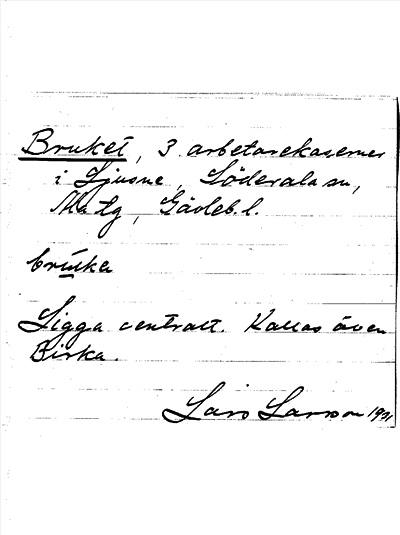 Bruket, 3 arbetarekaserner
i Ljusne, Söderala sn,
Ma tg, Gävleb. l.
bruka
Ligga centralt. Kallas även
Birka.
Lars Larsson